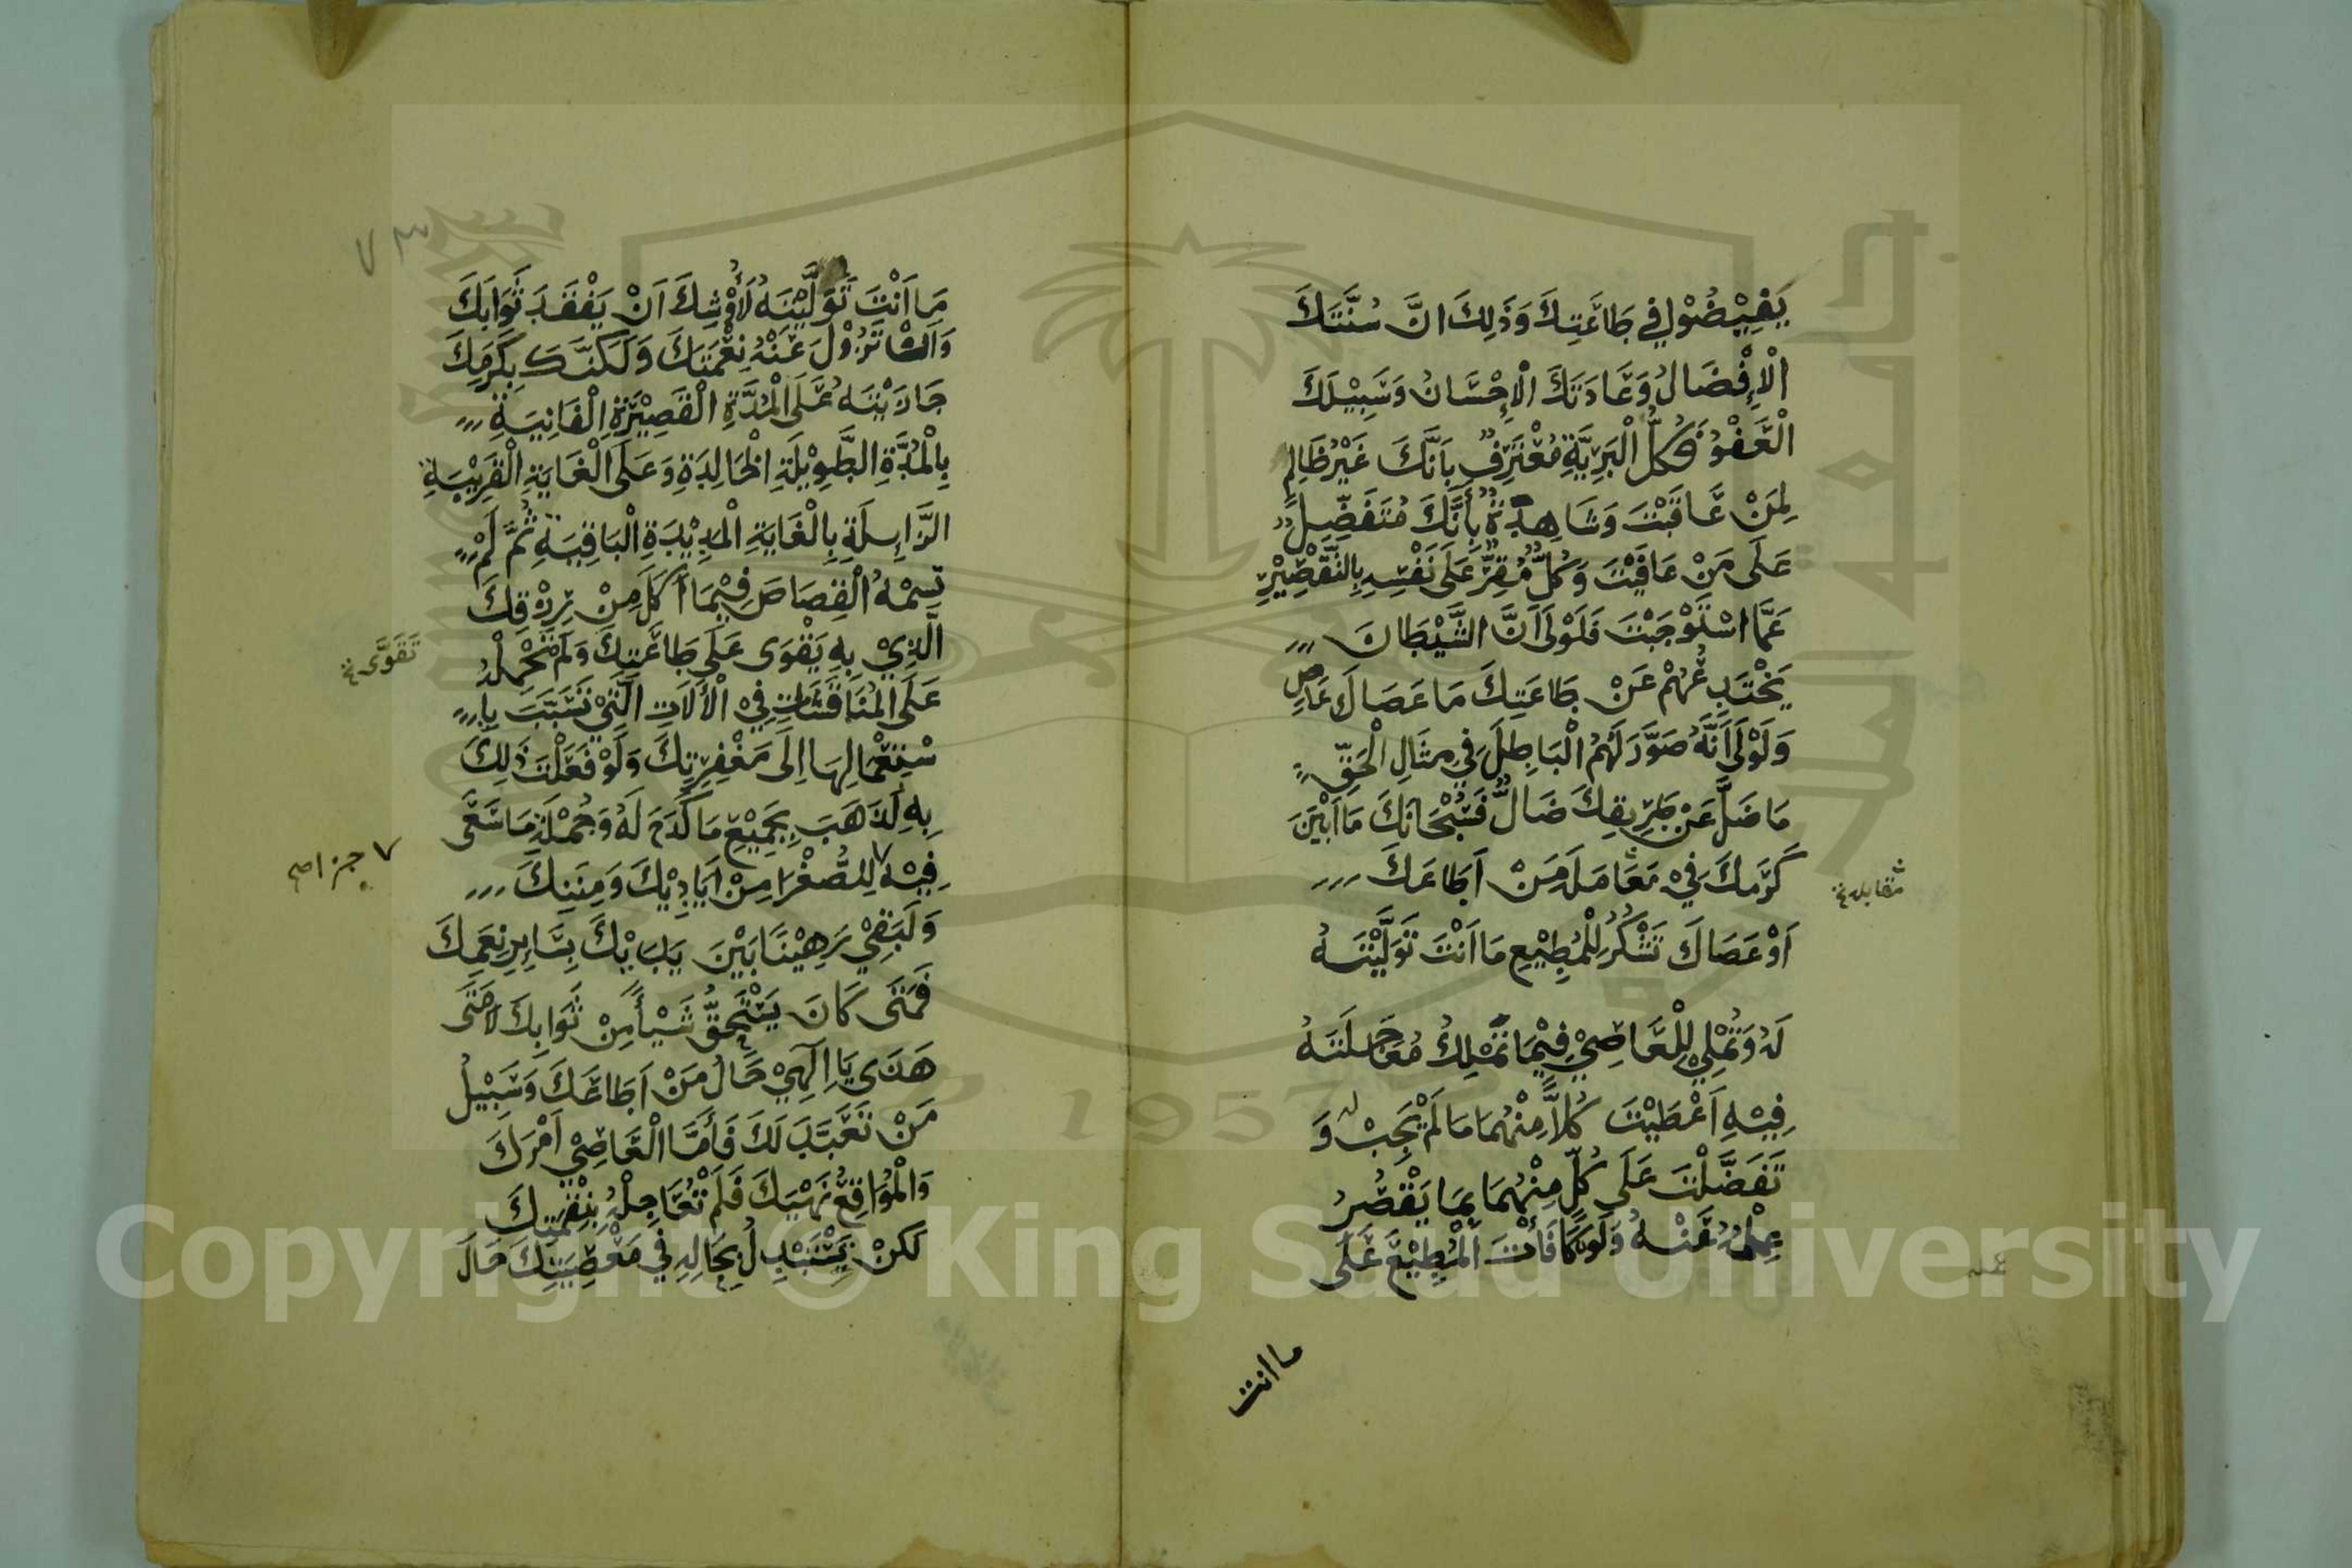 يَفِيْضُوْا فِي طَاعَتِكَ وَذَلِكَ انَّ سُنَّتَكَ
الْاِفْضَالُ وَعَادَتَكَ الْاِحْسَانُ وَسَبِيْلَكَ
الْعَفْوُ فَكُلُّ الْبَرِيَّةِ مُعْتَرِفَةٌ بِاَنَّكَ غَيْرُ ظَالِمٍ
لِمَنْ عَاقَبْتَ وَشَاهِدَةٌ بِأَنَّكَ مُتَفَضِّلٌ
عَلَى مَنْ عَافَيْتَ وَكُلٌّ مُقِرٌّ عَلَى نَفْسِهِ بِالتَّقْصِيْرِ
عَمَّا اسْتَوْجَبْتَ فَلَوْلَا اَنَّ الشَّيْطَانَ
يَخْتَدِعُهُمْ عَنْ طَاعَتِكَ مَا عَصَاكَ عَاصٍ
وَلَوْلَا اَنَّهُ صَوَّرَ لَهُمُ الْبَاطِلَ فِي مِثَالِ الْحَقِّ
مَا ضَلَّ عَنْ طَرِيقِكَ ضَالٌّ فَسُبْحَانَكَ مَا اَبْيَنَ
كَرَمَكَ فِيْ مُعَامَلَةِ مَنْ اَطَاعَكَ
مقابلة
اَوْ عَصَاكَ تَشْكُرُ لِلْمُطِيْعِ مَا اَنْتَ تَوَلَّيْتَهُ
لَهُ وَتُمْلِيْ لِلْعَاصِيْ فِيْمَا تَمْلِكُ مُعَاجَلَتَهُ
فِيْهِ اَعْطَيْتَ كُلاًّ مِنْهُمَا مَا لَمْ يَجِبْ لَهُ وَ
تَفَضَّلْتَ عَلَى كُلٍّ مِنْهُمَا بِمَا يَقْصُرُ
عَمَلُهُ عَنْهُ وَلَوْ كَافَأْتَ الْمُطِيْعَ عَلَى
ما انت
٧٣
مَا اَنْتَ تَوَلَّيْتَهُ لَأَوْشَكَ اَنْ يَفْقَدَ ثَوَابَكَ
وَاَنْ تَزُوْلَ عَنْهُ نِعْمَتَكَ وَلَكِنَّكَ بِكَرَمِكَ
جَازَيْتَهُ عَلَى الْمُدَّةِ الْقَصِيْرَةِ الْفَانِيَةِ
بِالْمُدَّةِ الطَّوِيْلَةِ الْخَالِدَةِ وَعَلَى الْغَايَةِ الْقَرِيْبَةِ
الزَّايِلَةِ بِالْغَايَةِ الْمَدِيْدَةِ الْبَاقِيَةِ ثُمَّ لَمْ
تَسِمْهُ الْقِصَاصَ فِيْمَا اَكَلَ مِنْ رِزْقِكَ
الَّذِيْ بِهِ يَقْوَى عَلَى طَاعَتِكَ وَلَمْ تَحْمِلْهُ
تَقَوَّى
عَلَى الْمُنَاقَشَاتِ فِيْ الْأَلَاتِ الَّتِيْ تَسَبَّبَ بِاِ
سْتِعْمَالِهَا اِلَى مَغْفِرَتِكَ وَلَوْ فَعَلْتَ ذَلِكَ
بِهِ لَذَهَبَ بِجَمِيْعِ مَا كَدَحَ لَهُ وَجُمْلَةِ مَا سَعَى
فِيْهِ لِلصُّغْرَا مِنْ اَيَادِيْكَ وَمِنَنِكَ
٧ جزا صح
وَلَبَقِيَ رَهِيْنًا بَيْنَ يَدَيْكَ بِسَايِرِ نِعَمِكَ
فَمَتَى كَانَ يَسْتَحِقُّ شَيْأً مِنْ ثَوَابِكَ لَا مَتَى
هَذَى يَا اِلَهِيْ حَالُ مَنْ اَطَاعَكَ وَسَبِيْلُ
مَنْ تَعَبَّدَ لَكَ فَأَمَّا الْعَاصِيْ اَمْرَكَ
وَالْمُوَاقِعُ نَهْيَكَ فَلَمْ تُعَاجِلْهُ بِنِقْمَتِكَ
لَكِنْ يَسْتَبْدِلُ بِحَالِهِ فِي مَعْصِيَتِكَ حَالَ
1957
Copyright © King Saud University